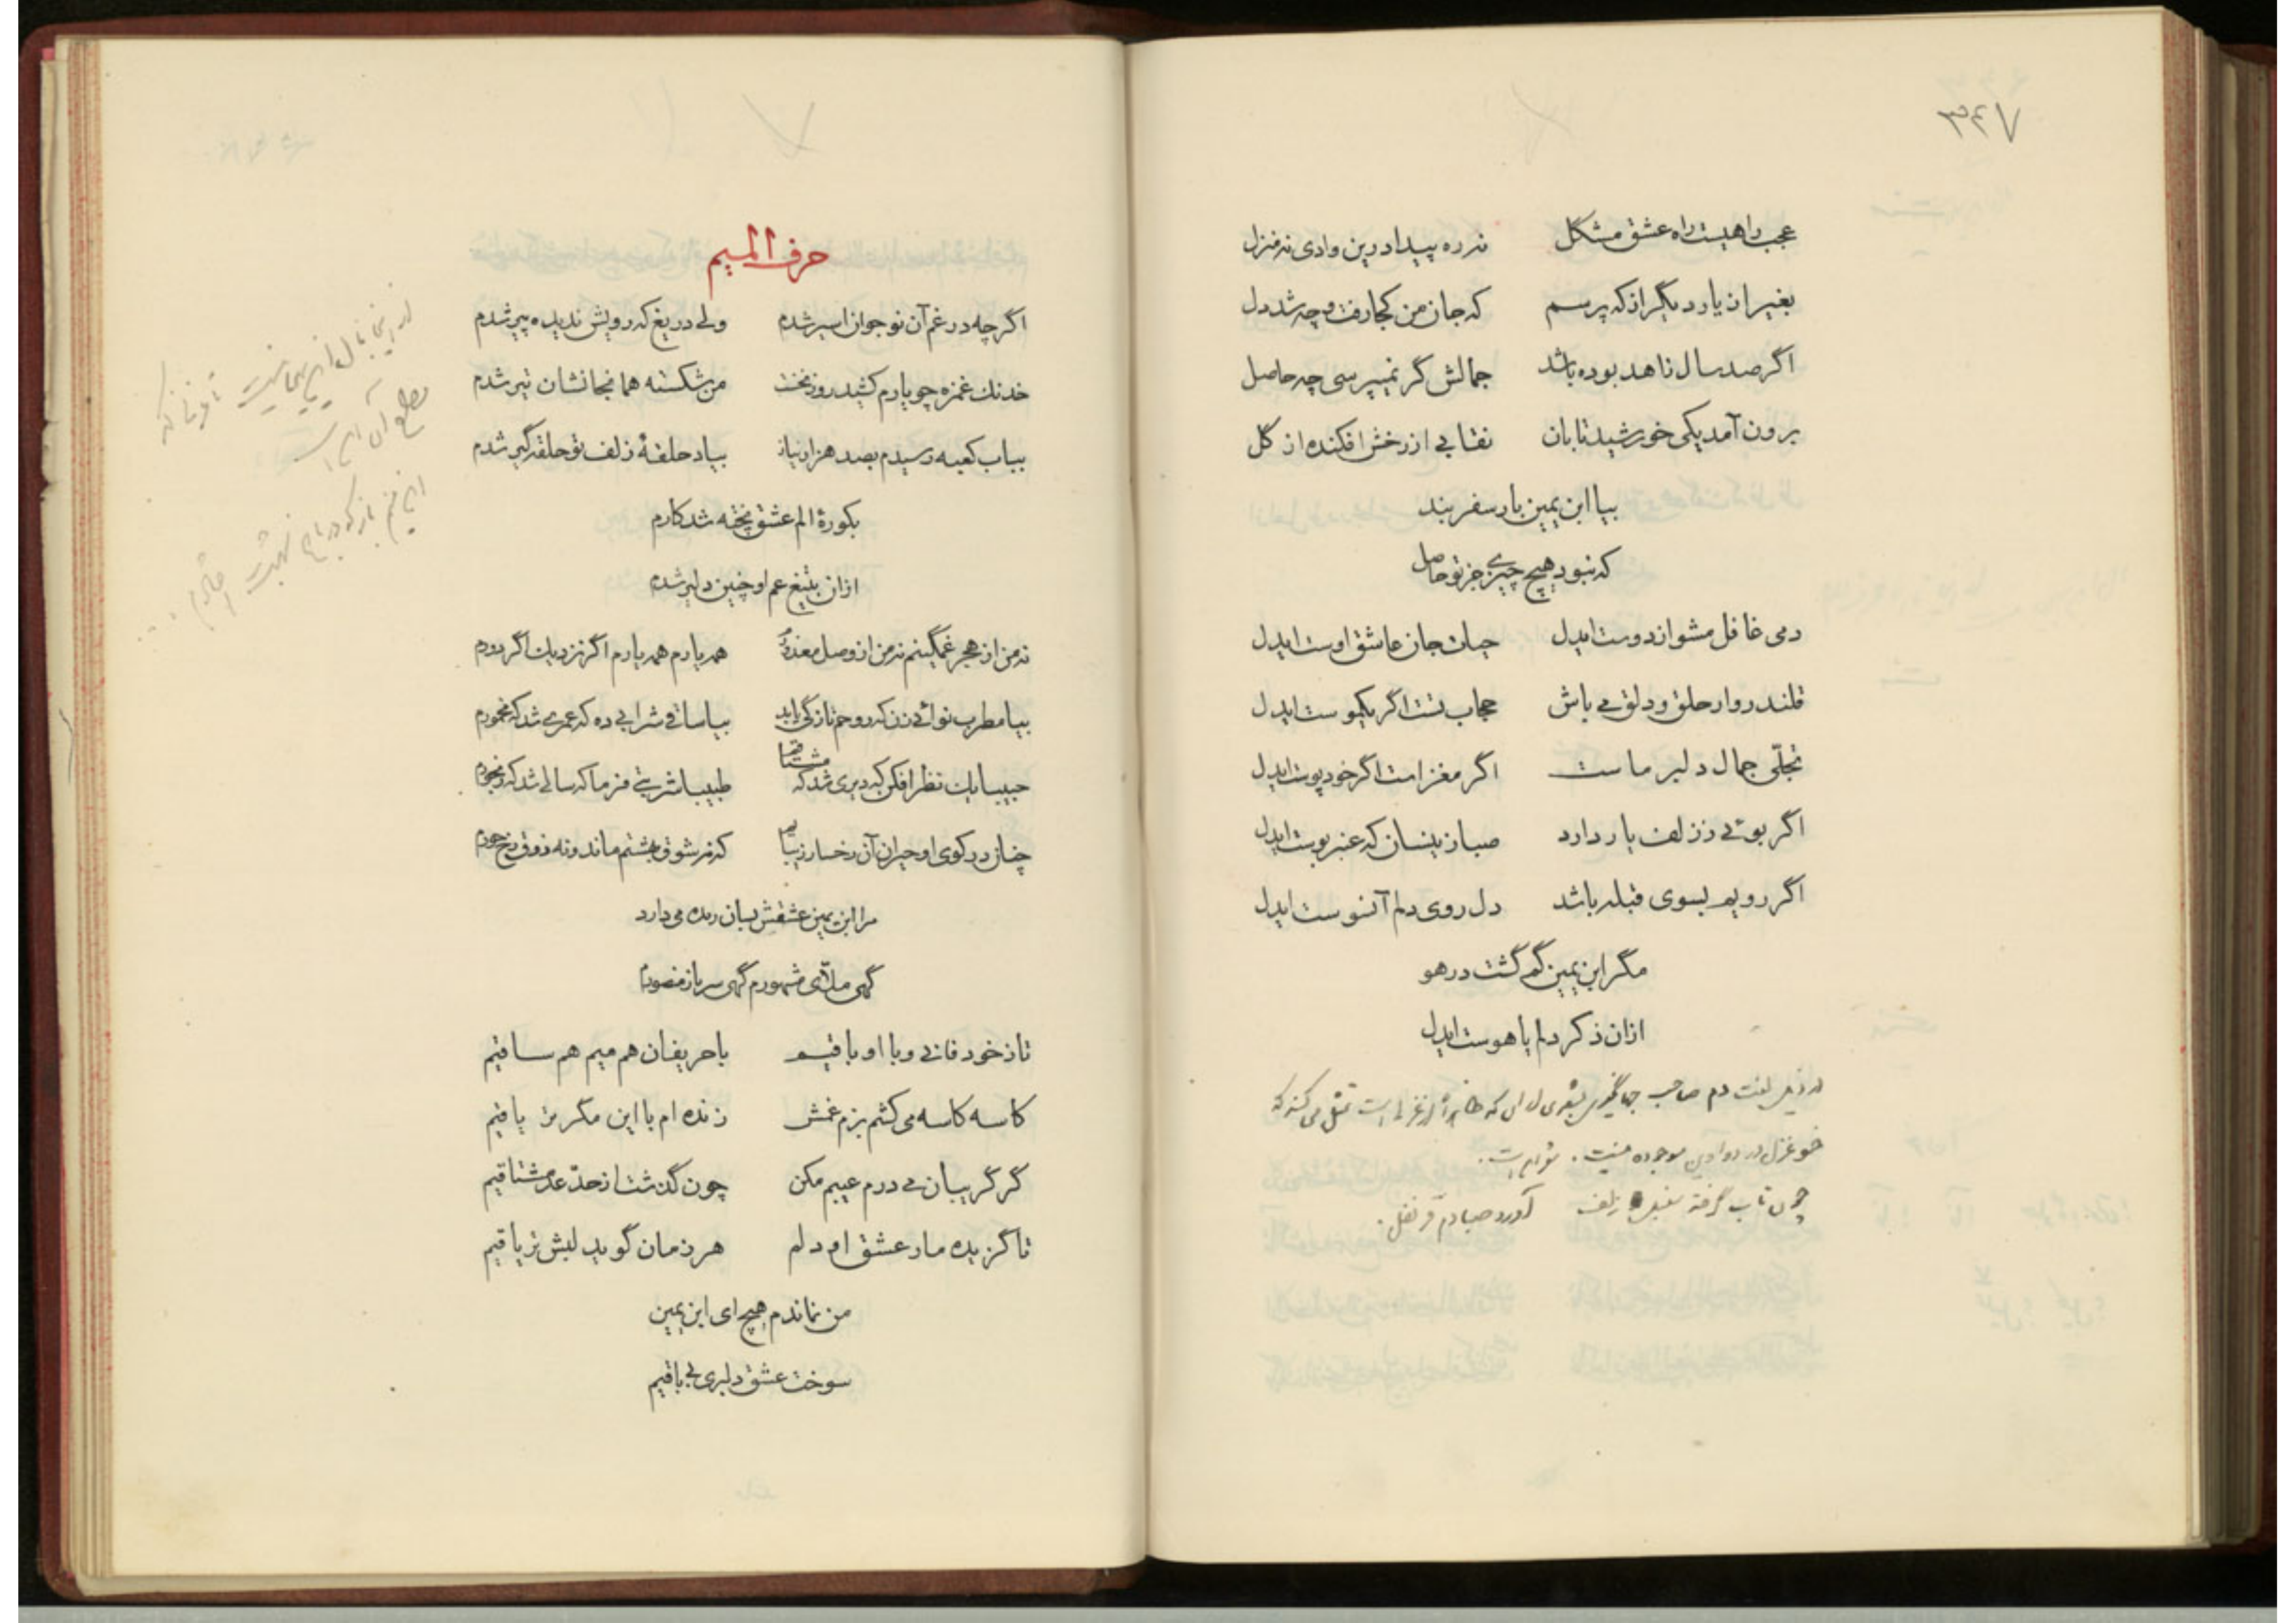 ۳۴۷
عجب راهیست راه عشق مشکل نه ره پیدا درین وادی نه منزل
بغیر از یار دیگر از که پرسم که جان من کجا رفت و چه شد دل
اگر صد سال زاهد بوده باشد جمالش گر نمیپرسی چه حاصل
برون آمد یکی خورشید تابان نقابی از رخش افکنده از گل
بیا ابن یمین بار سفر بند
که نبود هیچ چیزی جز تو حاصل
دمی غافل مشو از دوست ایدل حیات جان عاشق اوست ایدل
قلندروار حلق و دلق می باش حجاب تست اگر یکموست ایدل
تجلّی جمال دلبر ماست اگر مغز است اگر خود پوست ایدل
اگر بوئی ز زلف یار دارد صبا زینسان که عنبر بوست ایدل
اگر رویم بسوی قبله باشد دل روی دلم آنسوست ایدل
مگر ابن یمین گم گشت در هو
ازان ذکر دلم یا هوست ایدل
در ذیل لغت دم صاحب جهانگیری بشعری از ابن که ظاهراً از غزلی است تمثل می کند که
خود غزل در دواوین موجوده نیست. شعر این است.
چون تاب گرفته سنبل زلف آورد صبا دم قرنفل.
حرف المیم
اگر چه در غم آن نوجوان اسیر شدم ولی دریغ که رویش ندیده پیر شدم
خدنك غمزه چو یارم کشید روز نخست من شکسته همانجا نشان تیر شدم
بباب کعبه رسیدم بصد هزار نیاز بیاد حلقهٔ زلف تو حلقه گیر شدم
بکورهٔ الم عشق پخته شد کارم
ازان بتیغ غم او چنین دلیر شدم
نه من از هجر غمگینم نه من از وصل مغرورم همه یارم همه یارم اگر نزدیك اگر دورم
بیا مطرب نوائی زن که روحم تازگی یابد بیا ساقی شرابی ده که عمری شد که مخمورم
حبیبا یك نظر افکن که دیری شد که مشتاقم طبیبا شربتی فرما که سالی شد که رنجورم
چنان در کوی او حیران آن رخسار زیبایم که نه شوق بهشتم ماند و نه ذوق رخ حورم
مرا ابن یمین عشقش بسان زنده می دارد
گهی ملّای مشهورم گهی سرباز منصورم
تا ز خود فانی و با او باقیم با حریفان هم میم هم ساقیم
کاسه کاسه می کشم بزم غمش زنده ام با این مگر من یاقیم
گر گریبان می درم عیبم مکن چون گذشت از حدّ عد مشتاقیم
تا گزیده مار عشق او دلم هر زمان گوید لبش تریاقیم
من نماندم هیچ ای ابن یمین
سوخت عشق دلبری بی باقیم